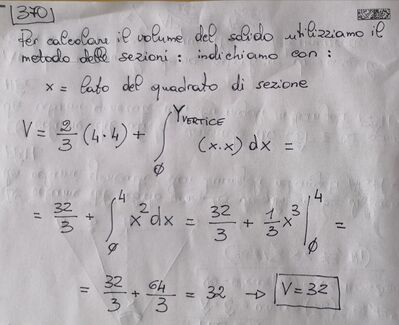 370
Per calcolare il volume del solido utilizziamo il
metodo delle sezioni: indichiamo con:
x = lato del quadrato di sezione
V = 2/3 (4·4) + ∫_0^{Y_VERTICE} (x·x) dx =
= 32/3 + ∫_0^4 x² dx = 32/3 + 1/3 x³ |_0^4 =
= 32/3 + 64/3 = 32 → V = 32